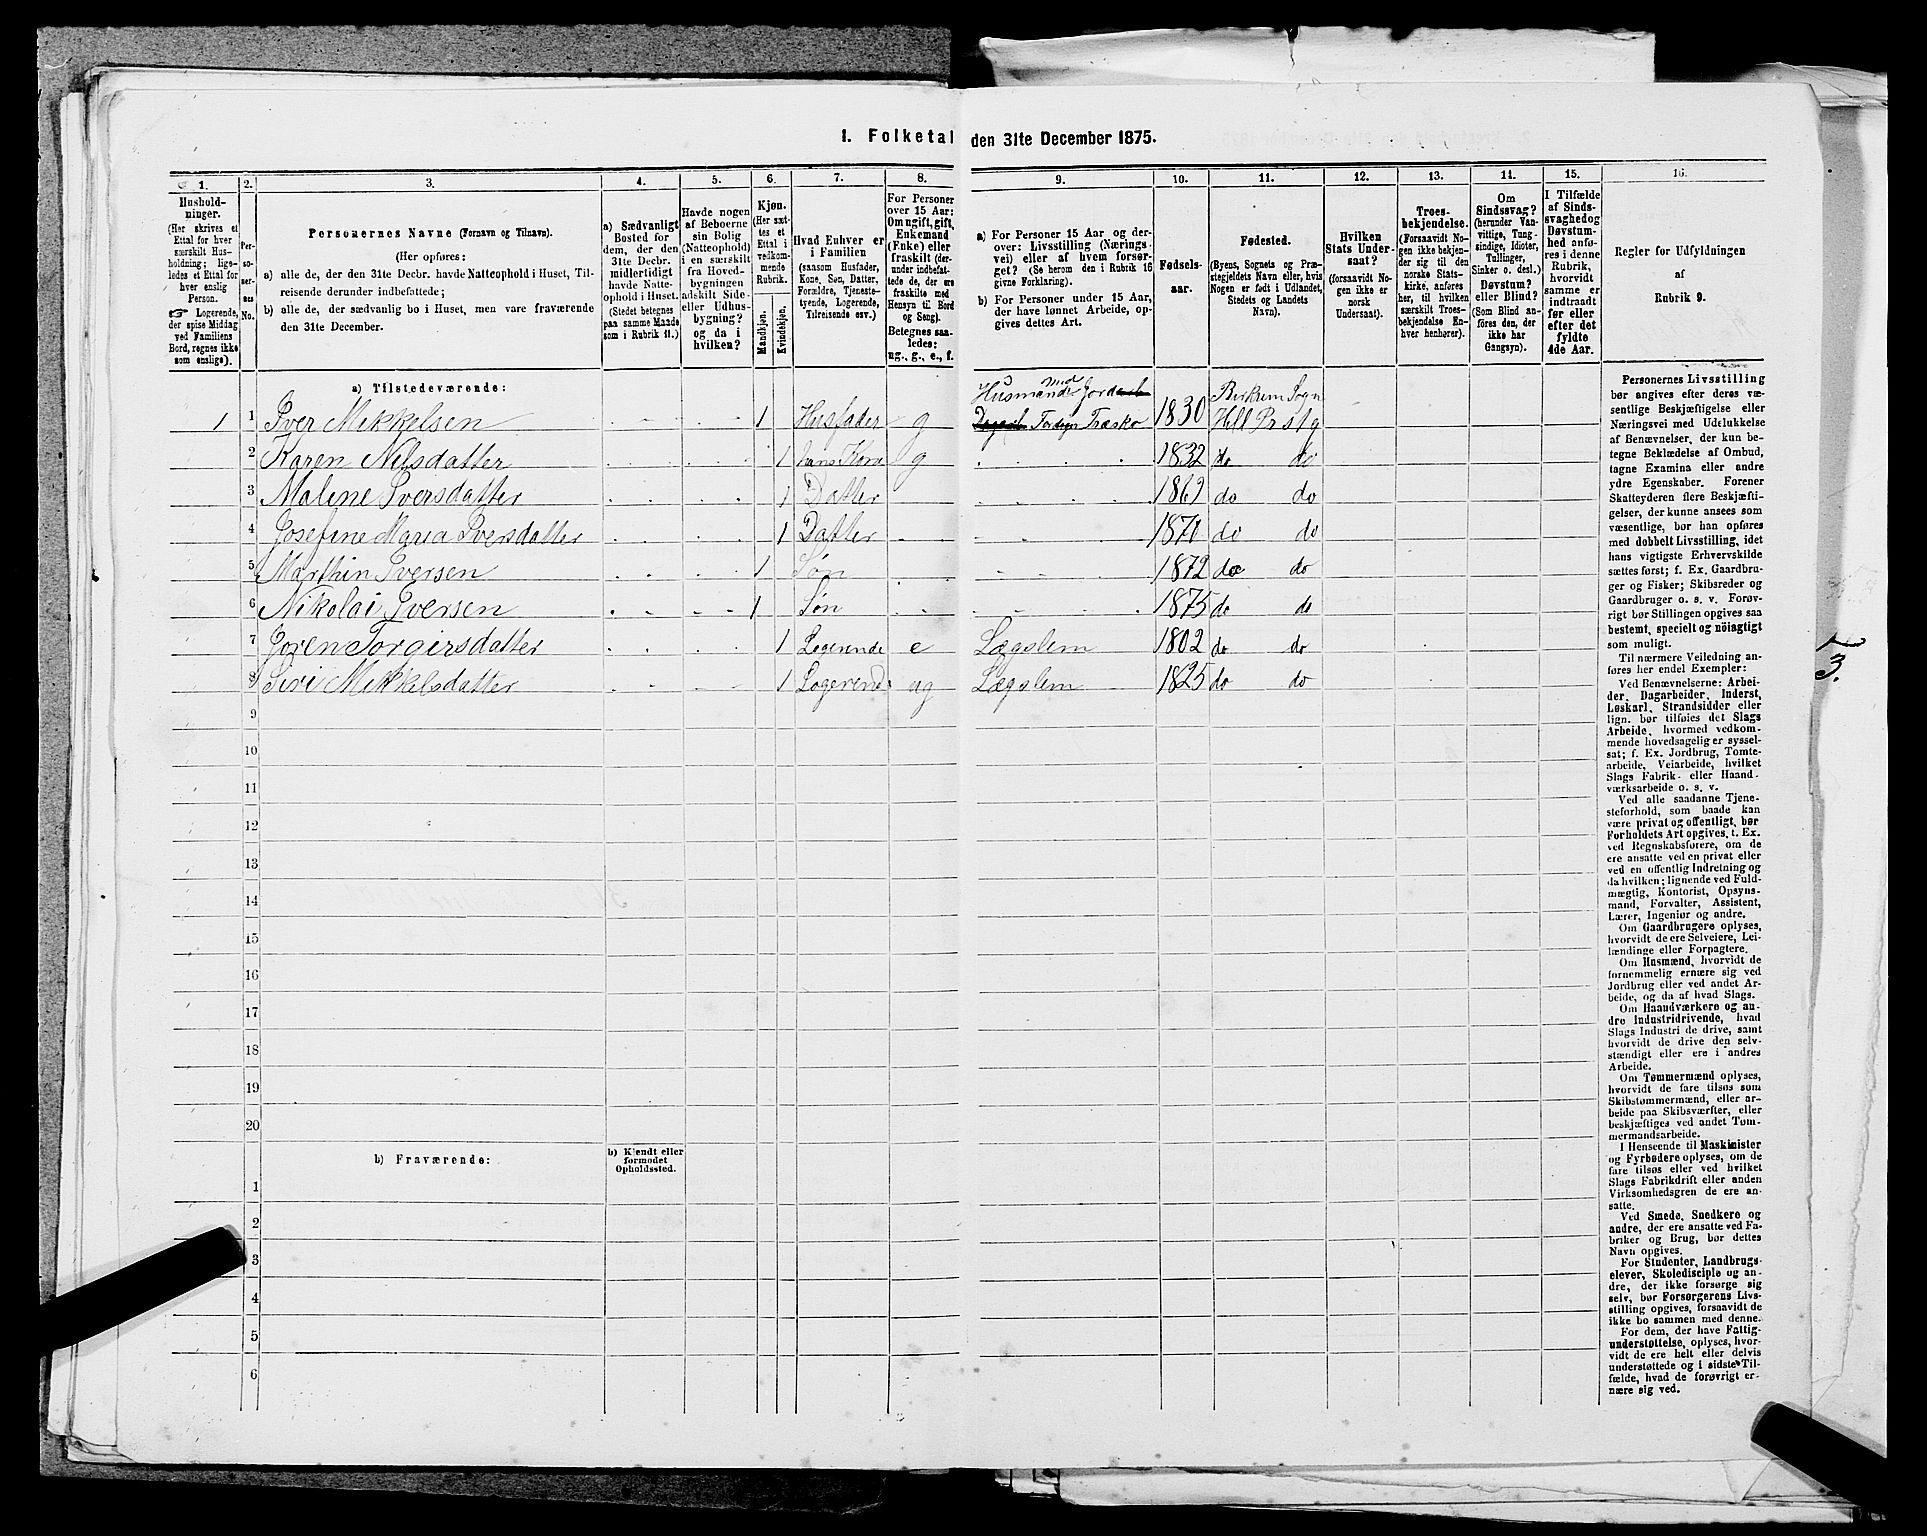 1. Folketal den 31te December 1875.
1. 2. 3. 4. 5. 6. 7. 8. 9. 10. 11. 12. 13. 14. 15. 16.
Hushold-
ninger.
(Her skrives et
Ettal for hver
særskilt Hus-
holdning; lige-
ledes et Ettal for
hver enslig
Person.
☞ Logerende,
der spise Middag
ved Familiens
Bord, regnes ikke
som enslige).
Per-
so-
ner-
nes
No.
Personernes Navne (Fornavn og Tilnavn).
(Her opføres:
a) alle de, der den 31te Decbr. havde Natteophold i Huset, Til-
reisende derunder indbefattede;
b) alle de, der sædvanlig bo i Huset, men vare fraværende
den 31te December.
a) Sædvanligt
Bosted for
dem, der den
31te Decbr.
midlertidigt
havde Natte-
ophold i Huset.
(Stedet betegnes
paa samme Maade
som i Rubrik 11.)
Havde nogen
af Beboerne
sin Bolig
(Natteophold)
i en særskilt
fra Hoved-
bygningen
adskilt Side-
eller Udhus-
bygning?
og da i
hvilken?
Kjøn.
(Her sæt-
tes et
Ettal i
vedkom-
mende
Rubrik.
Mandkjøn.
Kvindekjøn.
Hvad Enhver er
i Familien
(saasom Husfader,
Kone, Søn, Datter,
Forældre, Tjeneste-
tyende, Logerende,
Tilreisende osv.)
For Personer
over 15 Aar:
Om ugift, gift,
Enkemand
(Enke) eller
fraskilt (der-
under indbefat-
tede de, der ere
fraskilte med
Hensyn til Bord
og Seng).
Betegnes saa-
ledes:
ug., g., e., f.
a) For Personer 15 Aar og der-
over: Livsstilling (Nærings-
vei) eller af hvem forsør-
get? (Se herom den i Rubrik 16
givne Forklaring).
b) For Personer under 15 Aar,
der have lønnet Arbeide, op-
gives dettes Art.
Fødsels-
aar.
Fødested.
(Byens, Sognets og Præ-
stegjeldets Navn eller, hvis
Nogen er født i Udlandet,
Stedets og Landets
Navn).
Hvilken
Stats Under-
saat?
(forsaavidt No-
gen ikke er
norsk
Undersaat).
Troes-
bekjendelse.
(Forsaavidt No-
gen ikke bekjen-
der sig til den
norske Stats-
kirke, anføres
her, til hvilken
særskilt Troes-
bekjendelse En-
hver henhører).
Om
Sindssvag?
(herunder Van-
vittige, Tung-
sindige, Idioter,
Tullinger,
Sinker o. desl.)
Døvstum?
eller Blind?
(Som Blind an-
føres den, der
ikke har
Gangsyn).
I Tilfælde
af Sinds-
svaghed og
Døvstum-
hed anfø-
res i denne
Rubrik,
hvorvidt
samme er
indtraadt
før eller
efter det
fyldte
4de Aar.
Regler for Udfyldningen
af
Rubrik 9.
a) Tilstedeværende:
1 1 Iver Mikkelsen 1 Husfader g Husmand med Jord Træsko 1830 Birkrem Sogn Hell Prstg
2 Karen Nilsdatter 1 hans Kone g 1832 do do
3 Malene Iversdatter 1 Datter 1869 do do
4 Josefine Maria Iversdatter 1 Datter 1871 do do
5 Marthin Iversen 1 Søn 1872 do do
6 Nikolai Iversen 1 Søn 1875 do do
7 Joren Torgirsdatter 1 Logerende e Lægslem 1802 do do
8 Siri Mikkelsdatter 1 Logerend ug Lægslem 1825 do do
9
10
11
12
13
14
15
16
17
18
19
20
b) Fraværende:
b) Kjendt eller
formodet
Opholdssted.
1
2
3
4
5
6
Personernes Livsstilling
bør angives efter deres væ-
sentlige Beskjæftigelse eller
Næringsvei med Udelukkelse
af Benævnelser, der kun be-
tegne Beklædelse af Ombud,
tagne Examina eller andre
ydre Egenskaber. Forener
Skatteyderen flere Beskjæfti-
gelser, der kunne ansees som
væsentlige, bør han opføres
med dobbelt Livsstilling, idet
hans vigtigste Erhvervskilde
sættes først; f. Ex. Gaardbru-
ger og Fisker; Skibsreder og
Gaardbruger o. s. v. Forøv-
rigt bør Stillingen opgives saa
bestemt, specielt og nöiagtigt
som muligt.
Til nærmere Veiledning an-
føres her endel Exempler:
Ved Benævnelserne: Arbei-
der, Dagarbeider, Inderst,
Løskarl, Strandsidder eller
lign. bør tilføies det Slags
Arbeide, hvormed vedkom-
mende hovedsagelig er syssel-
sat; f. Ex. Jordbrug, Tomte-
arbeide, Veiarbeide, hvilket
Slags Fabrik- eller Haand-
værksarbeide o. s. v.
Ved alle saadanne Tjene-
steforhold, som baade kan
være privat og offentligt, bør
Forholdets Art opgives, t. Ex.
ved Regnskabsførere, om de
ere ansatte ved en privat eller
ved en offentlig Indretning og
da hvilken; lignende ved Fuld-
mægtig, Kontorist, Opsyns-
mand, Forvalter, Assistent,
Lærer, Ingeniør og andre.
Om Gaardbrugere oplyses,
hvorvidt de ere Selveiere, Lei-
lændinge eller Forpagtere.
Om Husmænd, hvorvidt de
fornemmelig ernære sig ved
Jordbrug eller ved andet Ar-
beide, og da af hvad Slags.
Om Haandværkere og an-
dre Industridrivende, hvad
Slags Industri de drive, samt
hvorvidt de drive den selv-
stændigt eller ere i andres
Arbeide.
Om Tømmermænd oplyses,
hvorvidt de fare tilsøs som
Skibstømmermænd, eller ar-
beide paa Skibsværfter, eller
beskjæftiges ved andet Tøm-
mermandsarbeide.
I Henseende til Maskinister
og Fyrbødere oplyses, om de
fare tilsøs eller ved hvilket
Slags Fabrikdrift eller anden
Virksomhedsgren de ere an-
satte.
Ved Smede, Snedkere og
andre, der ere ansatte ved Fa-
briker og Brug, bør dettes
Navn opgives.
For Studenter, Landbrugs-
elever, Skoledisciple og an-
dre, der ikke forsørge sig
selv, bør Forsørgerens Livs-
stilling opgives, forsaavidt de
ikke bo sammen med denne.
For dem, der have Fattig-
understøttelse, oplyses, hvor-
vidt de ere helt eller delvis
understøttede og i sidste Til-
fælde, hvad de forøvrigt er-
nære sig ved.
3.